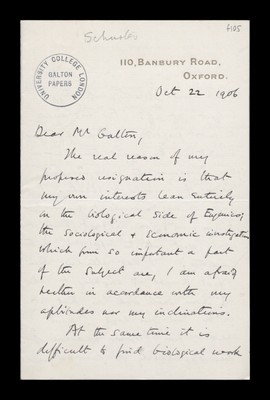 Schuster
4105
UNIVERSITY COLLEGE LONDON
GALTON
PAPERS
110, BANBURY ROAD,
OXFORD.
Oct 22 1906
Dear Mr Galton,
The real reason of my
proposed resignation is that
my own interests lean entirely
in the biological side of Eugenics,
the sociological & economic investigations
which form so important a part
of the subject are, I am afraid
neither in accordance with my
aptitudes nor my inclinations.
At the same time it is
difficult to find biological work